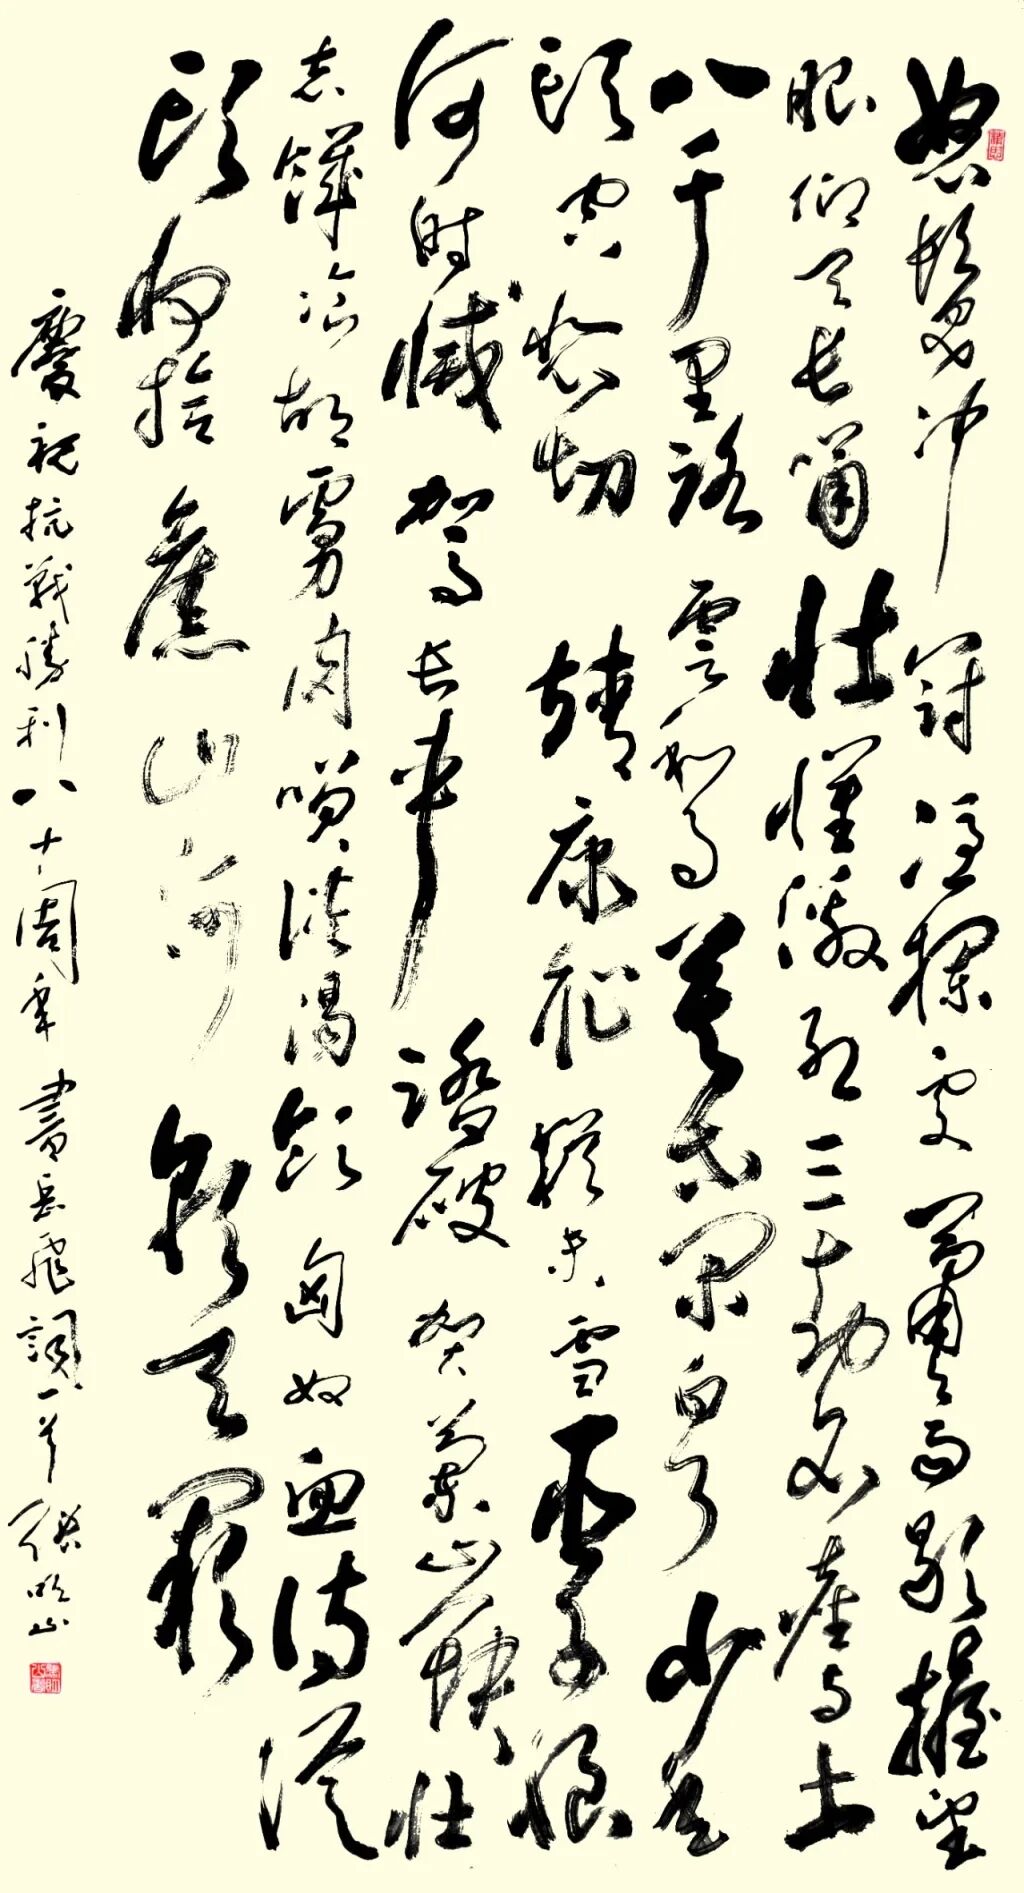 怒髮冲冠憑欄處瀟瀟雨歇擡望
眼仰天長嘯壯懷激烈三十功名塵與土
八千里路雲和月莫等閑白了少年
頭空悲切靖康耻猶未雪臣子恨
何時滅駕長車踏破賀蘭山缺壯
志饑飡胡虜肉笑談渴飲匈奴血待從
頭收拾舊山河朝天闕
慶祝抗戰勝利八十周年書岳飛詞一首